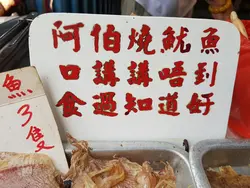 阿伯燒魷魚
口講講唔到
食過知道好
魚
3隻